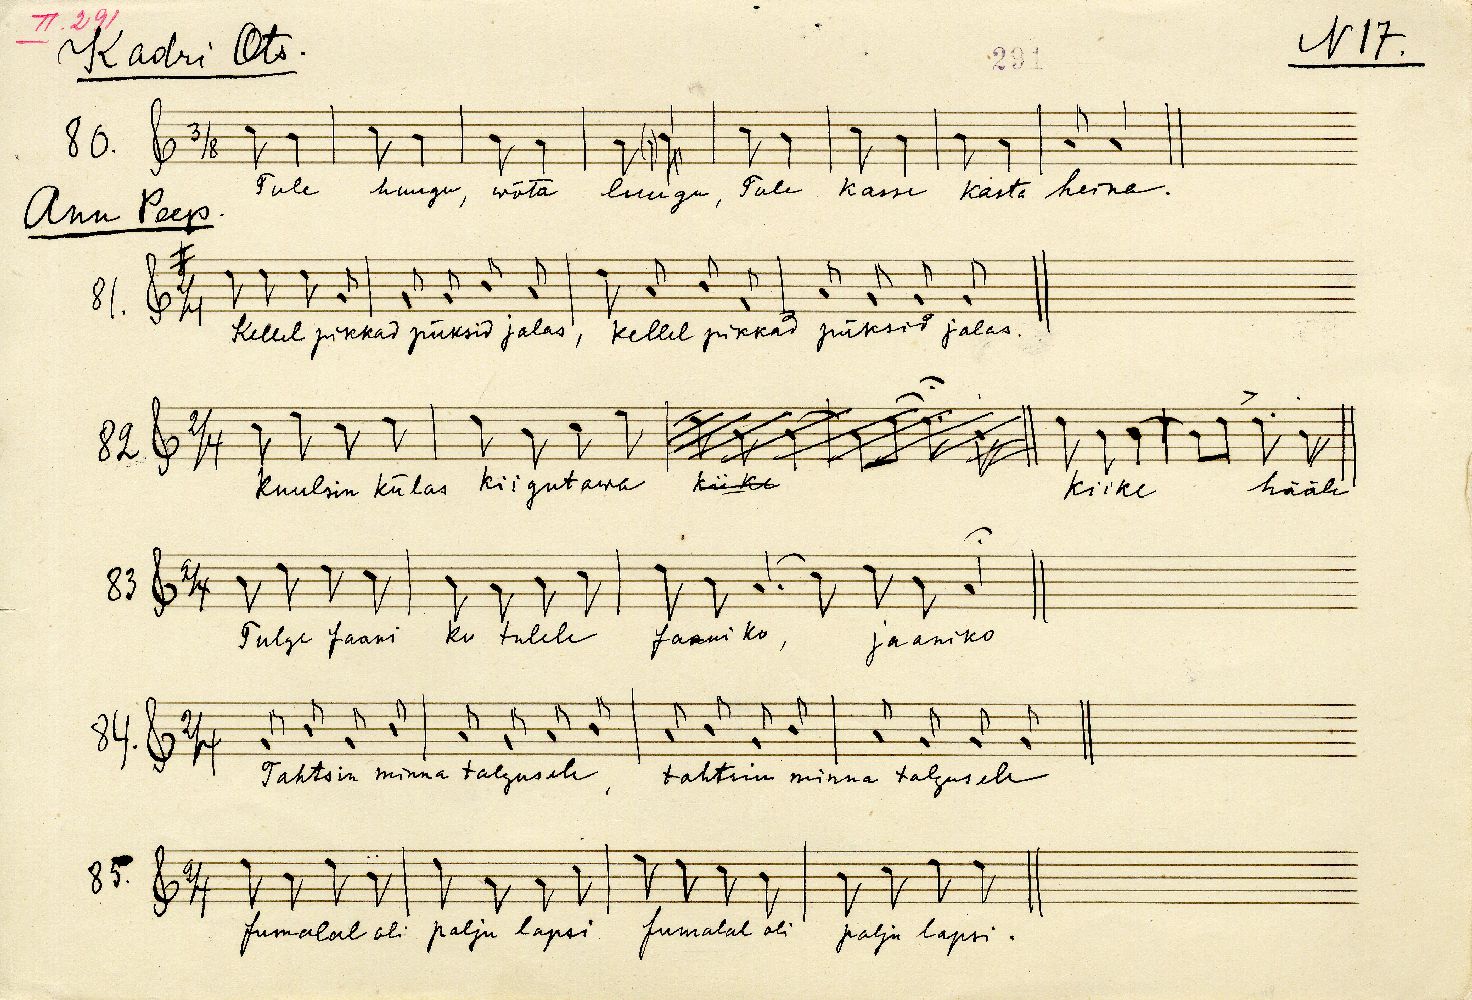 II. 291
Kadri Ots.
291
N 17.
80. 3/8
Tule huugu, wõta luugu, Tule kasse kasta heina.
Ann Peep.
81. 2/4
Kellel pikkad püksid jalas, kellel pikkad püksid jalas.
82 2/4
kuulsin külas kiigutawa kiike kiike hääle
83 2/4
Tulge Jaani ko tulele Jaaniko, jaaniko
84. 2/4
Tahtsin minna talgusele, tahtsin minna talgusele
85. 2/4
Jumalal oli palju lapsi Jumalal oli palju lapsi.